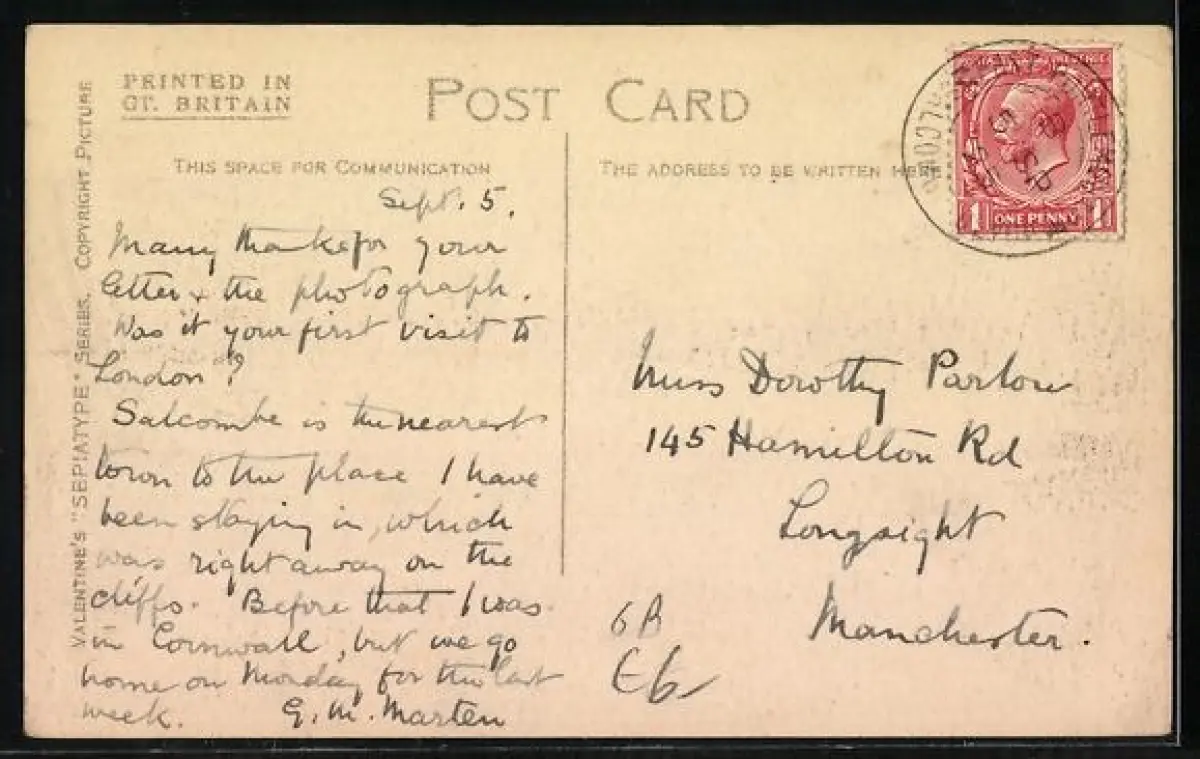 PRINTED IN
GT. BRITAIN
POST CARD
THIS SPACE FOR COMMUNICATION
THE ADDRESS TO BE WRITTEN HERE
VALENTINE'S "SEPIATYPE" SERIES. COPYRIGHT PICTURE
1 ONE PENNY 1
Sept. 5.
Many thanks for your
letter & the photograph.
Was it your first visit to
London?
Salcombe is the nearest
town to the place I have
been staying in, which
was right away on the
cliffs. Before that I was
in Cornwall, but we go
home on Monday for the last
week. G. M. Marten
Miss Dorothy
145 Hamilton Rd
Longsight
Manchester.
6B